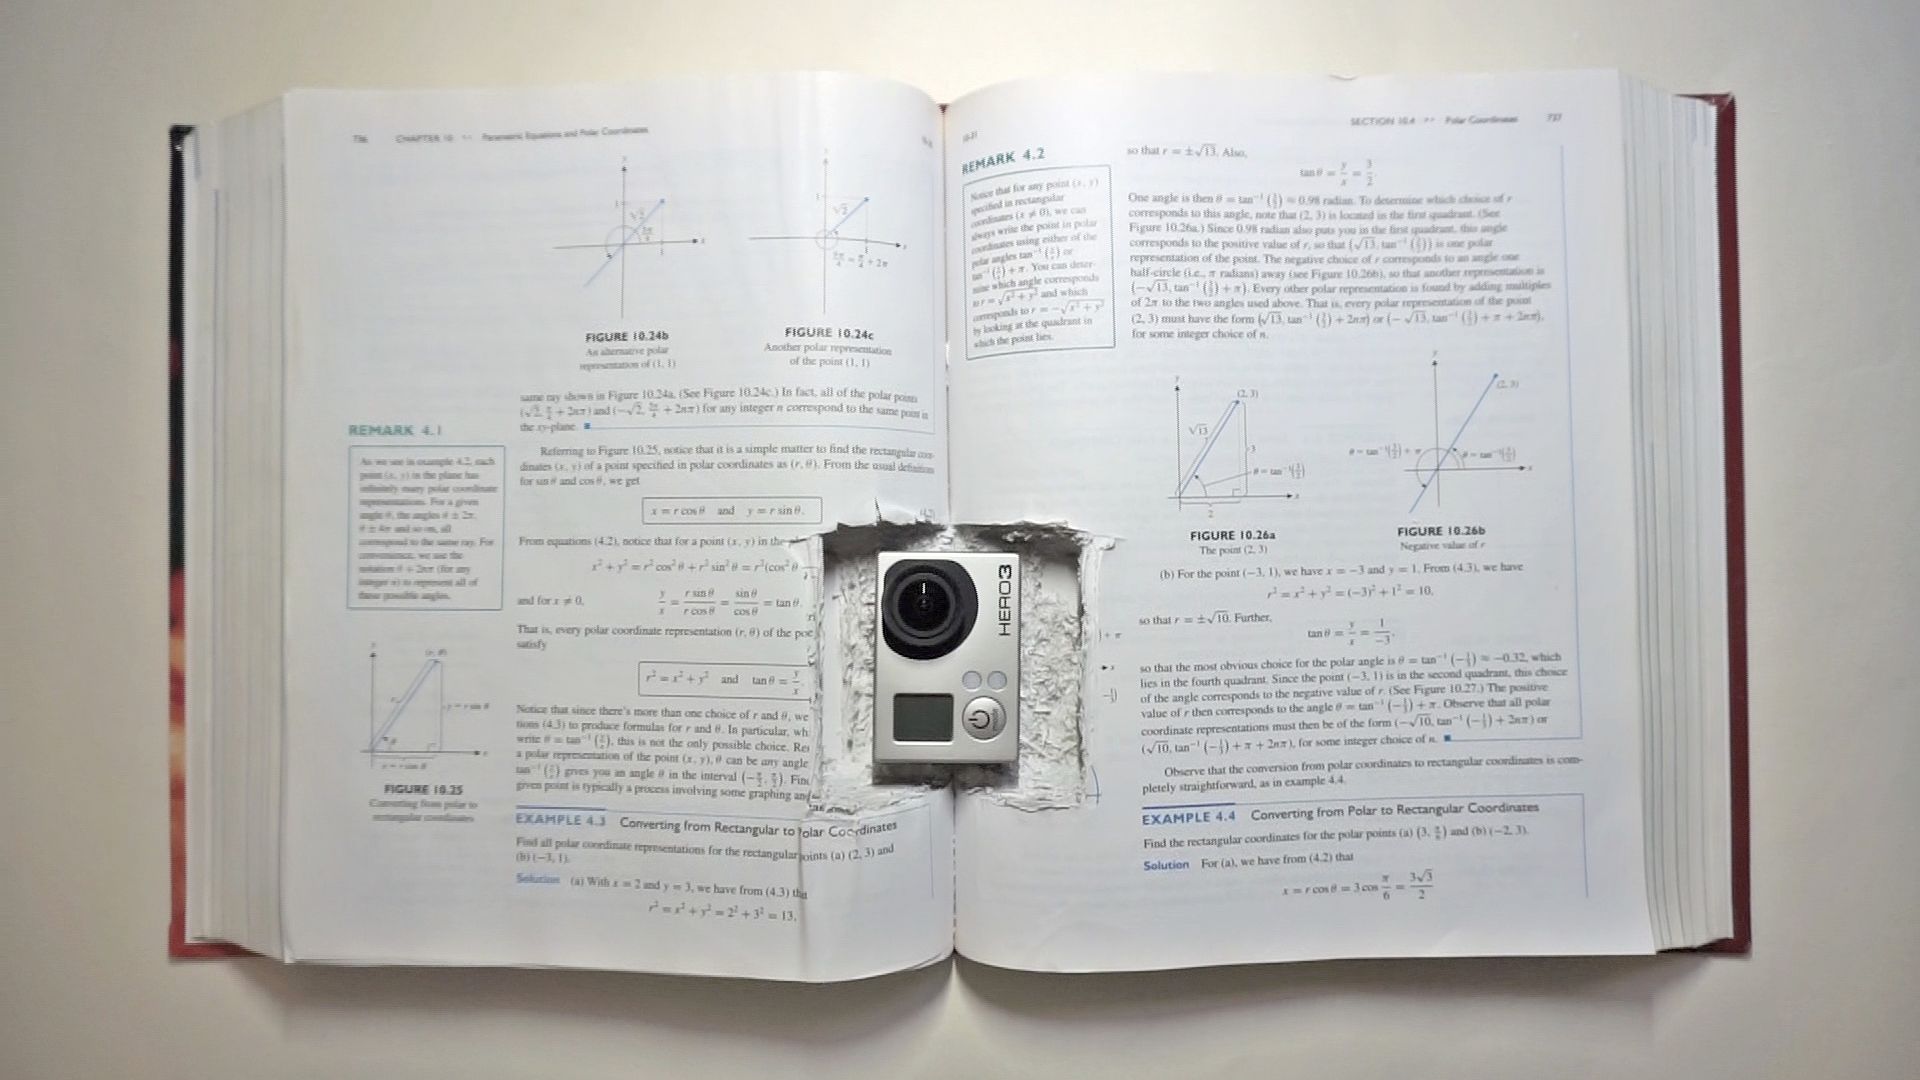 736 CHAPTER 10 Parametric Equations and Polar Coordinates
y
1
√2
5π/4
x
1
FIGURE 10.24b
An alternative polar
representation of (1, 1)
y
1
√2
x
1
9π/4 = π/4 + 2π
FIGURE 10.24c
Another polar representation
of the point (1, 1)
same ray shown in Figure 10.24a. (See Figure 10.24c.) In fact, all of the polar points
(√2, π/4 + 2nπ) and (−√2, 5π/4 + 2nπ) for any integer n correspond to the same point in
the xy-plane.
REMARK 4.1
As we see in example 4.2, each
point (x, y) in the plane has
infinitely many polar coordinate
representations. For a given
angle θ, the angles θ ± 2π,
θ ± 4π and so on, all
correspond to the same ray. For
convenience, we use the
notation θ + 2nπ (for any
integer n) to represent all of
these possible angles.
Referring to Figure 10.25, notice that it is a simple matter to find the rectangular coor-
dinates (x, y) of a point specified in polar coordinates as (r, θ). From the usual definitions
for sin θ and cos θ, we get
x = r cos θ and y = r sin θ. (4.2)
From equations (4.2), notice that for a point (x, y) in the
x² + y² = r² cos² θ + r² sin² θ = r²(cos² θ
and for x ≠ 0, y/x = r sin θ/r cos θ = sin θ/cos θ = tan θ.
That is, every polar coordinate representation (r, θ) of the
satisfy
r² = x² + y² and tan θ = y/x.
y
(r, θ)
r
y = r sin θ
θ
x
FIGURE 10.25
Converting from polar to
rectangular coordinates
Notice that since there's more than one choice of r and θ, we
tions (4.3) to produce formulas for r and θ. In particular, wh
write θ = tan⁻¹ (y/x), this is not the only possible choice. Re
a polar representation of the point (x, y), θ can be any angle
tan⁻¹ (y/x) gives you an angle θ in the interval (−π/2, π/2). Find
given point is typically a process involving some graphing and
EXAMPLE 4.3 Converting from Rectangular to Polar Coordinates
Find all polar coordinate representations for the rectangular points (a) (2, 3) and
(b) (−3, 1).
Solution (a) With x = 2 and y = 3, we have from (4.3) that
r² = x² + y² = 2² + 3² = 13,
HERO3
SECTION 10.4 Polar Coordinates 737
REMARK 4.2
Notice that for any point (x, y)
specified in rectangular
coordinates (x ≠ 0), we can
always write the point in polar
coordinates using either of the
polar angles tan⁻¹ (y/x) or
tan⁻¹ (y/x) + π. You can deter-
mine which angle corresponds
to r = √x² + y² and which
corresponds to r = −√x² + y²
by looking at the quadrant in
which the point lies.
so that r = ±√13. Also,
tan θ = y/x = 3/2.
One angle is then θ = tan⁻¹ (3/2) ≈ 0.98 radian. To determine which choice of r
corresponds to this angle, note that (2, 3) is located in the first quadrant. (See
Figure 10.26a.) Since 0.98 radian also puts you in the first quadrant, this angle
corresponds to the positive value of r, so that (√13, tan⁻¹ (3/2)) is one polar
representation of the point. The negative choice of r corresponds to an angle one
half-circle (i.e., π radians) away (see Figure 10.26b), so that another representation is
(−√13, tan⁻¹ (3/2) + π). Every other polar representation is found by adding multiples
of 2π to the two angles used above. That is, every polar representation of the point
(2, 3) must have the form (√13, tan⁻¹ (3/2) + 2nπ) or (−√13, tan⁻¹ (3/2) + π + 2nπ),
for some integer choice of n.
y
(2, 3)
√13
3
θ = tan⁻¹(3/2)
x
2
FIGURE 10.26a
The point (2, 3)
y
(2, 3)
θ = tan⁻¹(3/2) + π
θ = tan⁻¹(3/2)
x
FIGURE 10.26b
Negative value of r
(b) For the point (−3, 1), we have x = −3 and y = 1. From (4.3), we have
r² = x² + y² = (−3)² + 1² = 10,
so that r = ±√10. Further,
tan θ = y/x = 1/−3,
so that the most obvious choice for the polar angle is θ = tan⁻¹ (−1/3) ≈ −0.32, which
lies in the fourth quadrant. Since the point (−3, 1) is in the second quadrant, this choice
of the angle corresponds to the negative value of r. (See Figure 10.27.) The positive
value of r then corresponds to the angle θ = tan⁻¹ (−1/3) + π. Observe that all polar
coordinate representations must then be of the form (−√10, tan⁻¹ (−1/3) + 2nπ) or
(√10, tan⁻¹ (−1/3) + π + 2nπ), for some integer choice of n.
Observe that the conversion from polar coordinates to rectangular coordinates is com-
pletely straightforward, as in example 4.4.
EXAMPLE 4.4 Converting from Polar to Rectangular Coordinates
Find the rectangular coordinates for the polar points (a) (3, π/6) and (b) (−2, 3).
Solution For (a), we have from (4.2) that
x = r cos θ = 3 cos π/6 = 3√3/2